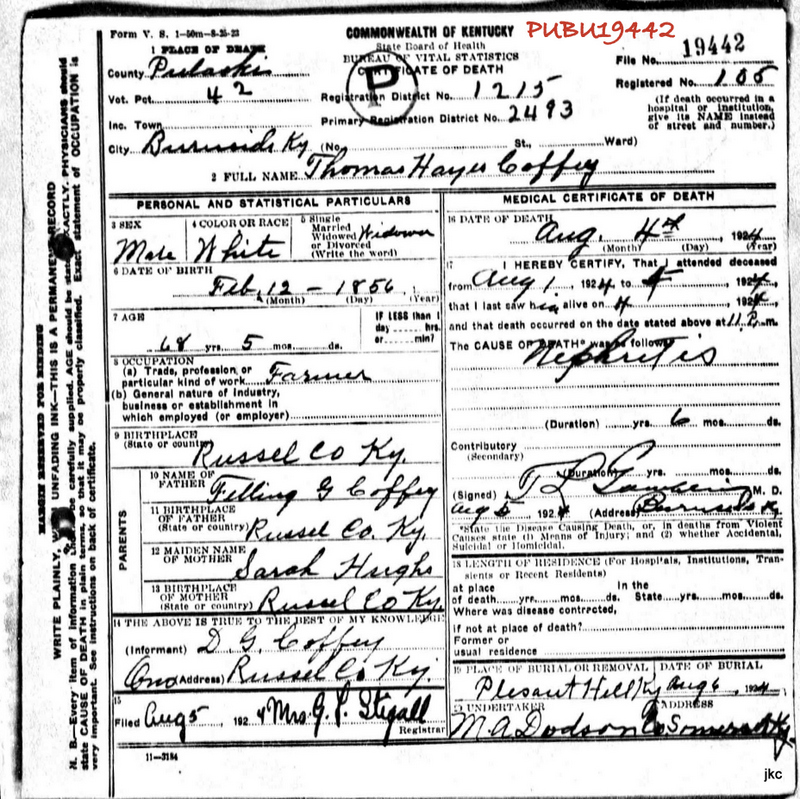 Form V. S. 1—50m—8-25-23
COMMONWEALTH OF KENTUCKY
PUBU19442
State Board of Health
BUREAU OF VITAL STATISTICS
CERTIFICATE OF DEATH
File No. 19442
Registered No. 105
(If death occurred in a hospital or institution, give its NAME instead of street and number.)
1 PLACE OF DEATH
County Pulaski
Vot. Pct. 42
Inc. Town
City Burnside Ky
P
Registration District No. 1215
Primary Registration District No. 2493
(No. St., Ward)
2 FULL NAME Thomas Hayes Coffey
PERSONAL AND STATISTICAL PARTICULARS
3 SEX
Male
4 COLOR OR RACE
White
5 Single
Married
Widowed
or Divorced
(Write the word)
Widower
6 DATE OF BIRTH
Feb. 12 – 1856
(Month) (Day) (Year)
7 AGE
68 yrs. 5 mos. ds.
IF LESS than 1
day hrs.
or min?
8 OCCUPATION
(a) Trade, profession, or
particular kind of work Farmer
(b) General nature of industry,
business or establishment in
which employed (or employer)
9 BIRTHPLACE
(State or country)
Russel Co Ky.
PARENTS
10 NAME OF
FATHER
Felling G Coffey
11 BIRTHPLACE
OF FATHER
(State or country)
Russel Co. Ky.
12 MAIDEN NAME
OF MOTHER
Sarah Hughs
13 BIRTHPLACE
OF MOTHER
(State or country)
Russel Co Ky.
14 THE ABOVE IS TRUE TO THE BEST OF MY KNOWLEDGE
(Informant) D. G. Coffey
(Address) Russel Co Ky.
15
Filed Aug 5 1924 Mrs. G. P. Stigall
Registrar
11—3184
MEDICAL CERTIFICATE OF DEATH
16 DATE OF DEATH
Aug. 4th, 1924
(Month) (Day) (Year)
17 I HEREBY CERTIFY, That I attended deceased
from Aug 1, 1924 to 4, 1924,
that I last saw him alive on 4, 1924,
and that death occurred on the date stated above at 11 P.m.
The CAUSE OF DEATH* was as follows:
Nephritis
(Duration) yrs. 6 mos. ds.
Contributory
(Secondary)
(Duration) yrs. mos. ds.
(Signed) M. D.
Aug 5 1924 (Address) Burnside Ky
*State the Disease Causing Death, or, in deaths from Violent
Causes state (1) Means of Injury; and (2) whether Accidental,
Suicidal or Homicidal.
18 LENGTH OF RESIDENCE (For Hospitals, Institutions, Transients or Recent Residents)
at place
of death yrs. mos. ds.
In the
State yrs. mos. ds.
Where was disease contrcted,
if not at place of death?
Former or
usual residence
19 PLACE OF BURIAL OR REMOVAL
Plesant Hill Ky
DATE OF BURIAL
Aug 6, 1924
20 UNDERTAKER
M. A. Dodson Co
ADDRESS
Somerset Ky
MARGIN RESERVED FOR BINDING
WRITE PLAINLY, UNFADING INK—THIS IS A PERMANENT RECORD
N. B.—Every item of information should be carefully supplied. AGE should be stated EXACTLY. PHYSICIANS should
state CAUSE OF DEATH in plain terms, so that it may be properly classified. Exact statement of OCCUPATION is
very important. See instructions on back of certificate.
jkc